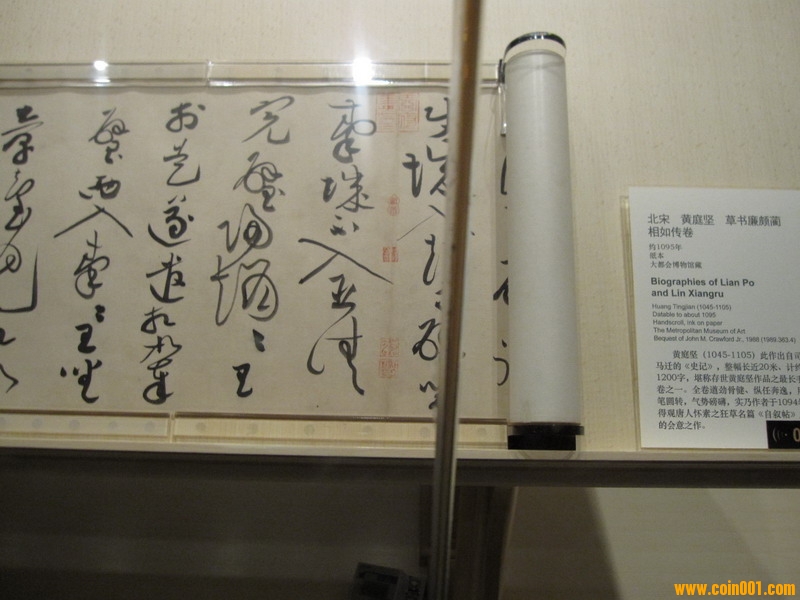 秦城不入臣請
完璧歸趙〻王
於是遂遣相如奉
璧西入秦〻王坐
章臺見相如
北宋 黄庭坚 草书廉颇蔺
相如传卷
约1095年
纸本
大都会博物馆藏
Biographies of Lian Po
and Lin Xiangru
Huang Tingjian (1045-1105)
Datable to about 1095
Handscroll, ink on paper
The Metropolitan Museum of Art
Bequest of John M. Crawford Jr., 1988 (1989.363.4)
黄庭坚(1045-1105)此作出自司
马迁的《史记》,整幅长近20米、计约
1200字,堪称存世黄庭坚作品之最长手
卷之一。全卷遒劲骨健、纵任奔逸,
笔圆转,气势磅礴,实乃作者于1094年
得观唐人怀素之狂草名篇《自叙帖》
的会意之作。
www.coin001.com